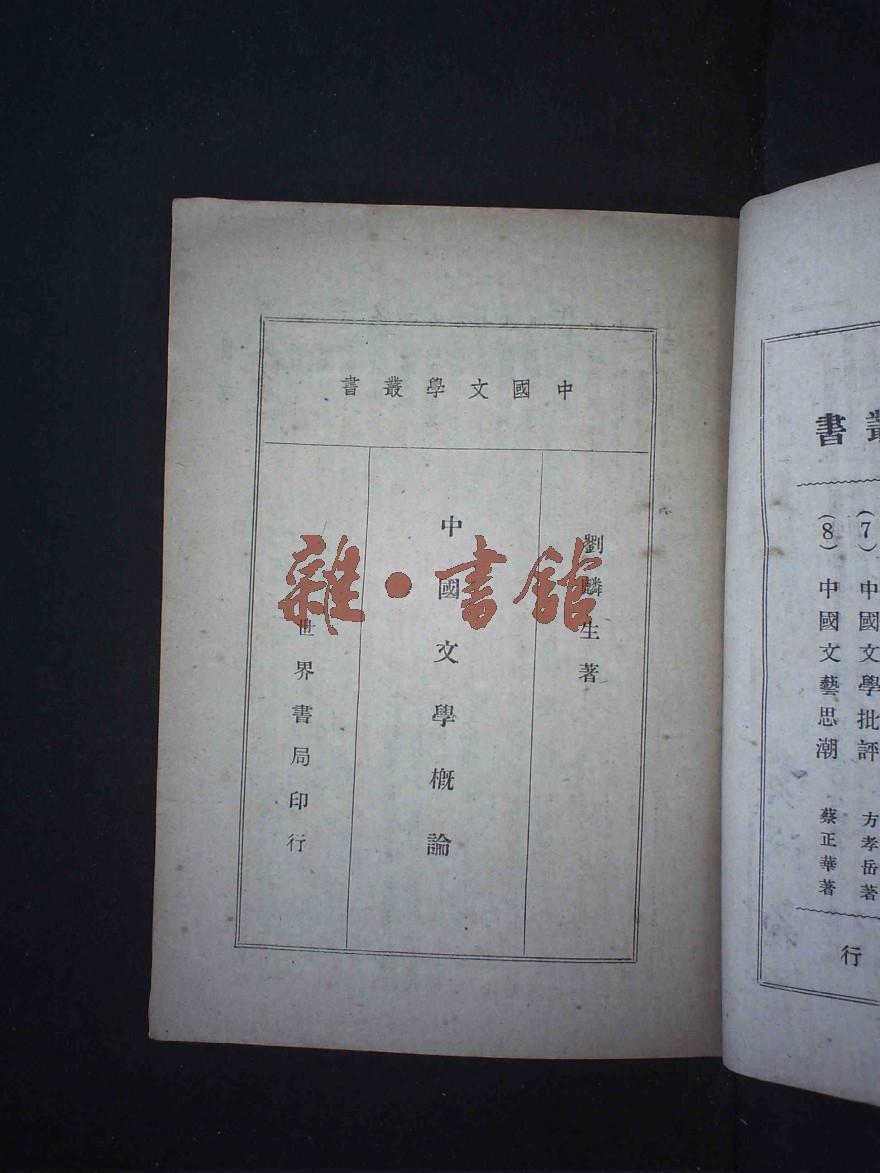 中國文學叢書
劉麟生著
中國文學概論
世界書局印行
雜·書館
叢書
(7) 中國文學批評 方孝岳著
(8) 中國文藝思潮 蔡正華著
行